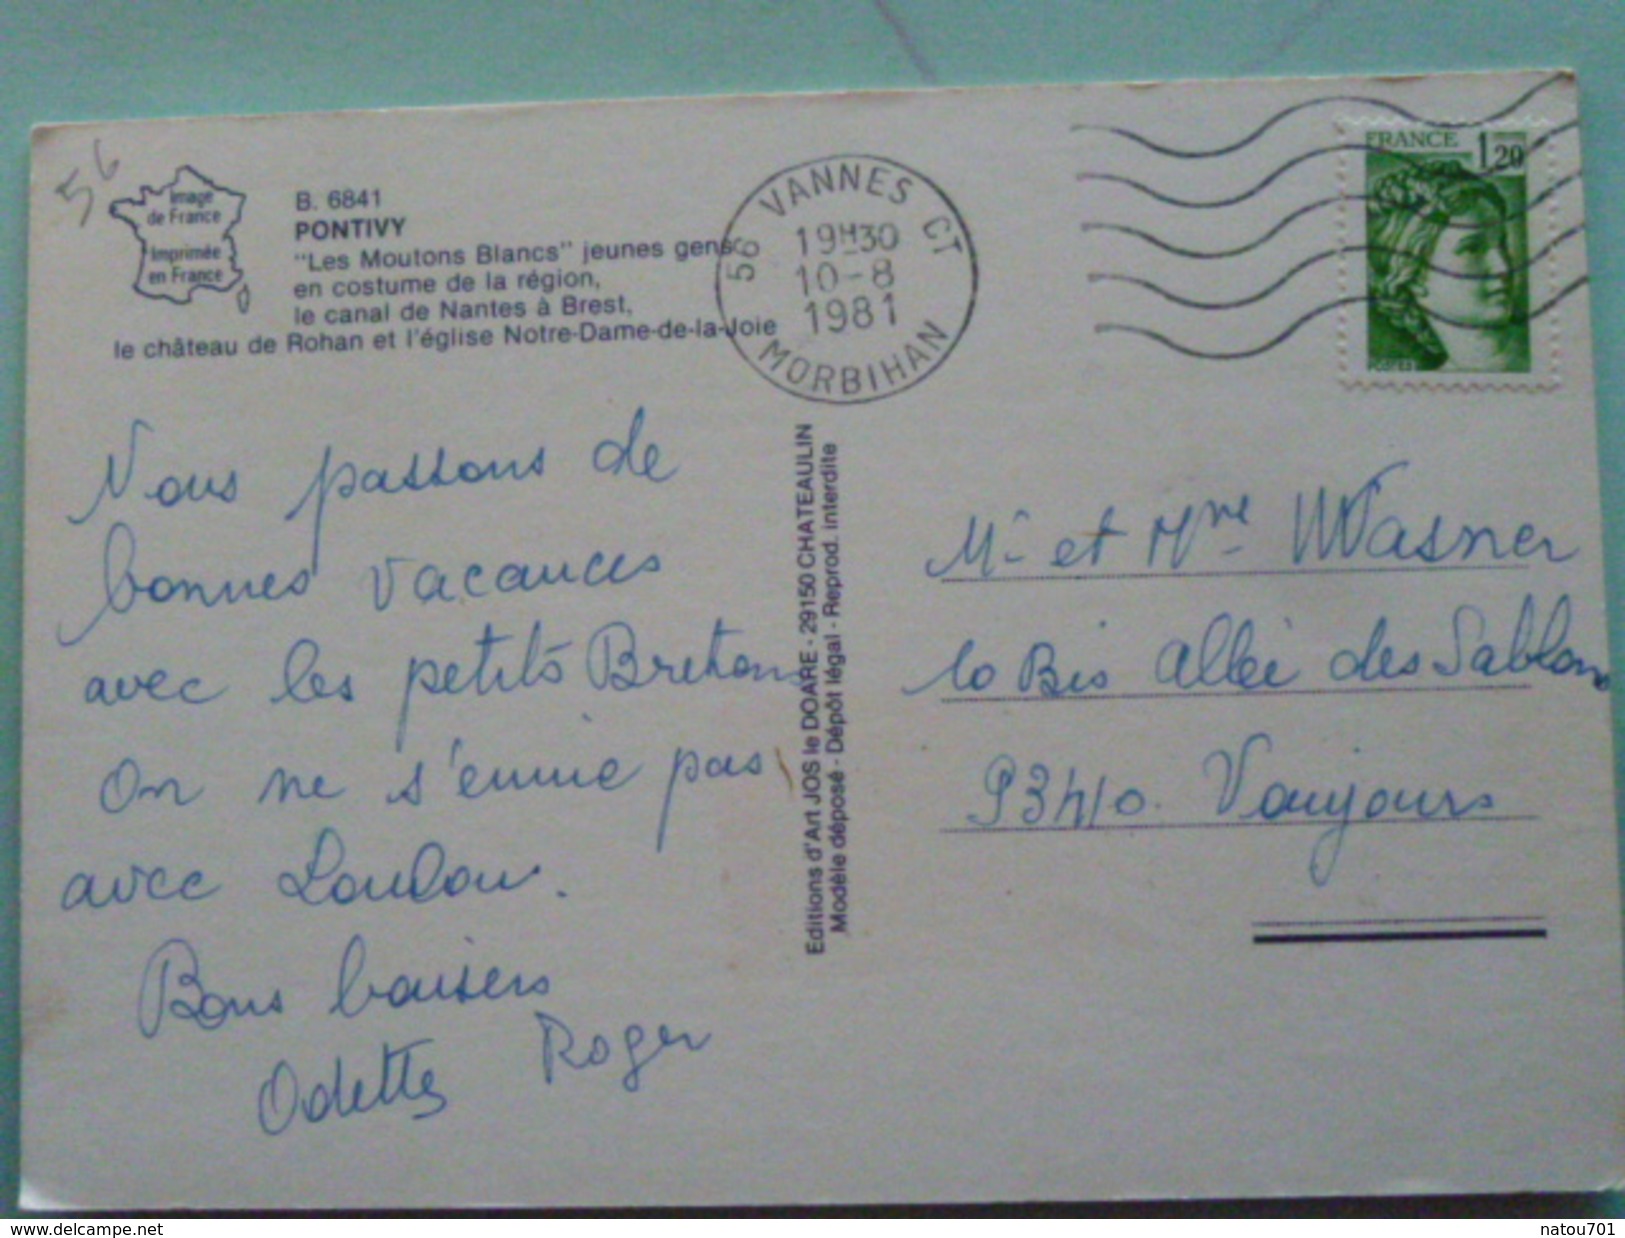 56
Image
de France
Imprimée
en France
B. 6841
PONTIVY
"Les Moutons Blancs" jeunes gens
en costume de la région,
le canal de Nantes à Brest,
le château de Rohan et l'église Notre-Dame-de-la-Joie
56 VANNES CT
19H30
10-8
1981
MORBIHAN
FRANCE 1,20
POSTES
Nous passons de
bonnes vacances
avec les petits Bretons
On ne s'ennuie pas
avec Loulou.
Bons baisers
Odette Roger
Editions d'Art JOS le DOARE - 29150 CHATEAULIN
Modèle déposé - Dépôt légal - Reprod. interdite
Mr et Mme Wasner
10 Bis allée des Sablons
93410. Vaujours
www.delcampe.net
natou701